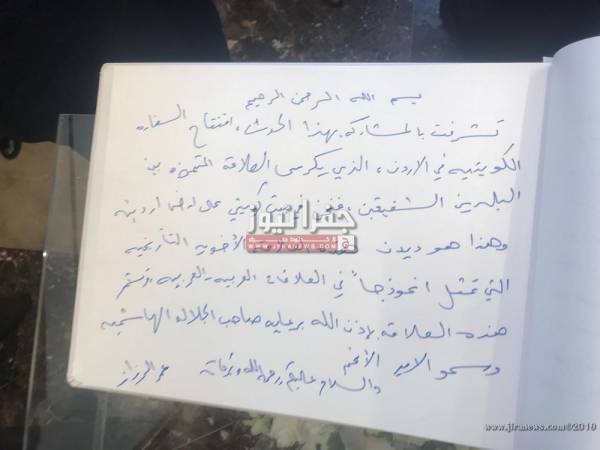 بسم الله الرحمن الرحيم
تشرفت بالمشاركة بهذا الحدث، افتتاح السفاره
الكويتيه في الاردن، الذي يكرس العلاقة المتميزه بين
البلدين الشقيقين، كويتي على ارض اردنيه
وهذا هو ديدن الأخويه التأريخيه
التي تمثل انموذجاً في العلاقات العربيه - العربيه،
هذه العلاقه بإذن الله برعايه صاحب الجلاله الهاشميه
وسمو الامير الأفخم
والسلام عليكم ورحمة الله وبركاته
عمر الرزاز
جفرا نيوز
WWW.JFRANEWS.COM
www.jfranews.com©2019